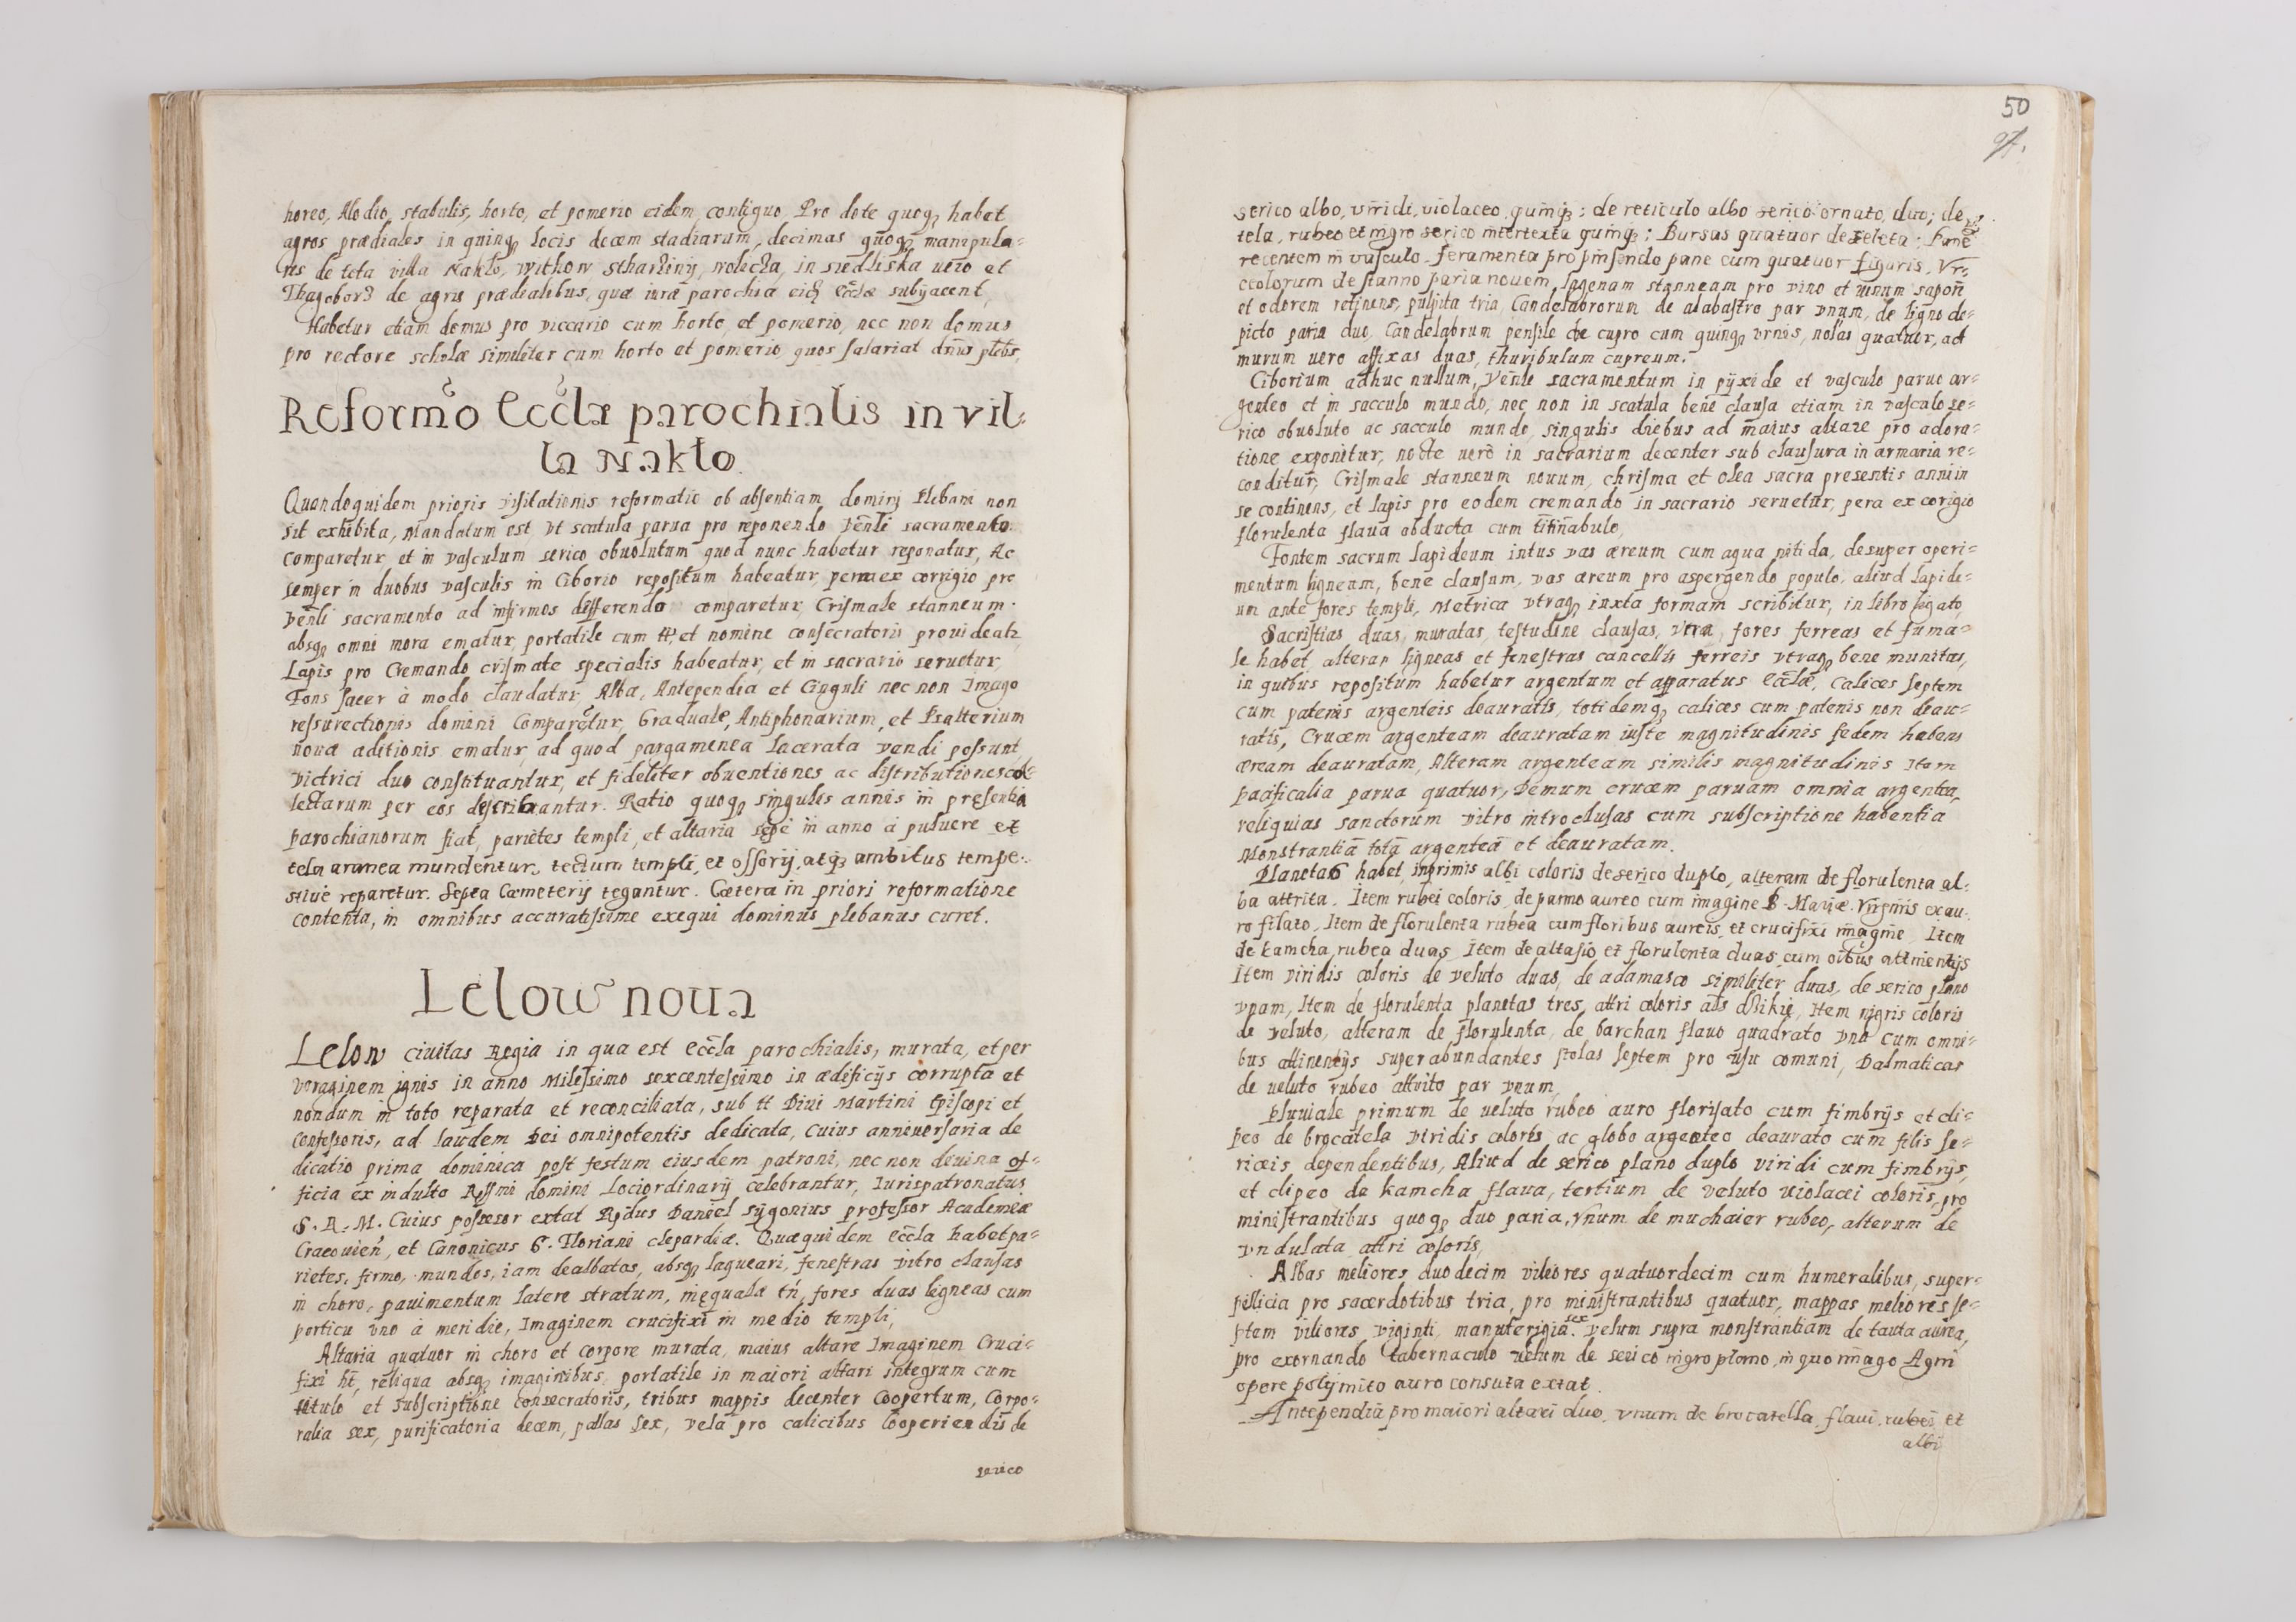 horeo, Alodio, stabulis, horto, et pomerio eidem contiguo. Pro dote quoqꝫ habet
agros prædiales in quinqꝫ locis decem stadiarum, decimas quoqꝫ manipula-
res de tota villa Nakło, Withow stharziny, wolicza, in siedliska uero et
de agris prædialibus, quæ iurā parochia eccłæ subijacent,
Habetur etiam domus pro viccario cum horto, et pomerio, nec non domus
pro rectore scholæ similiter cum horto et pomerio, quos salariat dn̄us plebs,
Reformo Eccła parochialis in vil-
la Nakło
Quandoquidem prioris visitationis reformatio ob absentiam dominij Plebani non
sit exhibita, Mandatum est vt scatula parua pro reponendo Ven̄li sacramento
comparetur et in vasculum serico obuolutum quod nunc habetur reponatur, Ac
semper in duobus vasculis in Ciborio repositum habeatur, pera ex corrigio pro
Ven̄li sacramento ad infirmos differendo comparetur, Crismale stanneum
absqꝫ omni mora ematur, portatile cum tt, et nomine consecratoris prouideatꝛ
Lapis pro Cremando crismate specialis habeatur, et in sacrario seruetur,
Fons sacer à modo claudatur Alba, Antependia et Cinguli nec non Imago
ressurectionis domini Comparetur, Graduale, Antiphonarium, et Psalterium
nouæ aditionis ematur, ad quod pargamenea lacerata vendi possunt
victrici duo constituantur, et fideliter obuentiones ac distributiones col-
lectarum per eos describantur. Ratio quoqꝫ singulis annis in presentia
parochianorum fiat, parietes templi, et altaria sepe in anno à puluere et
tela aranea mundentur, tectum templi, et ossorij, atqꝫ ambitus tempe-
stiue reparetur. Septa Cœmeterij tegantur. Cætera in priori reformatione
contenta, in omnibus accuratissime exequi dominus plebanus curet.
Lelow noua
Lelow ciuitas Regia in qua est eccła parochialis, murata, et per
voraginem ignis in anno Milessimo sexcentessimo in ædificijs corrupta et
nondum in toto reparata et reconciliata, sub tt Diui Martini Episcopi et
Confessoris, ad laudem Dei omnipotentis dedicata, Cuius anniuersaria de
dicatio prima dominica post festum eiusdem patroni, nec non deuina of-
ficia ex indulto Rssmi domini Lociordinarij celebrantur, Iurispatronatus
S. R. M. Cuius possesor extat Rn̄dus Daniel Sijgonius professor Academiæ
Cracouien̄, et Canonicus S. Floriani clepardiæ. Quæquidem eccła habet pa-
rietes, firmo, mundos, iam dealbatos, absqꝫ laqueari, fenestras vitro clausas
in choro, pauimentum latere stratum, inęquale tn̄, fores duas ligneas cum
porticu vno à meridie, Imaginem crucifixi in medio templi,
Altaria quatuor in choro et corpore murata, maius altare Imaginem Cruci-
fixi ht̄, reliqua absqꝫ imaginibus, portatile in maiori altari integrum cum
titulo et subscriptione consecratoris, tribus mappis decenter Coopertum, Corpo-
ralia sex, purificatoria decem, pallas sex, vela pro calicibus Cooperiendis de
serico
50
serico albo, viridi, violaceo quinqꝫ; de reticulo albo serico ornato, duo; de
tela, rubeo et nigro serico intertexta quinqꝫ; Bursas quatuor de teleta;
recentem in vasculo. feramenta pro pinsendo pane cum quatuor figuris, Vr-
ceolorum de stanno paria nouem, lagenam stanneam pro vino et vinum sapon̄
et odorem retinens, pulpita tria, Candelabrorum de alabastro par vnum, de ligno de-
picto paria duo, Candelabrum pensile de cupro cum quinqꝫ vrnis, nolas quatuor, ad
murum uero affixas duas, thuribulum cupreum.
Ciborium adhuc nullum, Ven̄le sacramentum in pijxide et vasculo paruo ar-
genteo et in sacculo mundo, nec non in scatula bene clausa etiam in vasculo se-
rico obuoluto ac sacculo mundo, singulis diebus ad maius altare pro adora-
tione exponitur, nocte uerò in sacrarium decenter sub clausura in armaria re-
conditur, Crismale stanneum nouum, chrisma et olea sacra presentis anni in
se continens, et lapis pro eodem cremando in sacrario seruetur, pera ex corigio
florulenta flaua obducta cum titinnabulo,
Fontem sacrum lapideum intus vas æreum cum aqua nitida, desuper operi-
mentum ligneum, bene clausum, vas æreum pro aspergendo populo, aliud lapide-
um ante fores templi, Metrica vtraqꝫ iuxta formam scribitur, in libro ligato,
Sacristias duas, muratas, testudine clausas, vna fores ferreas et fuma-
le habet, altera ligneas et fenestras cancellis ferreis vtraqꝫ bene munitas,
in quibus repositum habetur argentum et apparatus Eccłæ, Calices septem
cum patenis argenteis deauratis, totidemqꝫ calices cum patenis non deau-
ratis, Crucem argenteam deauratam iuste magnitudinis sedem habens
æream deauratam, Alteram argenteam similis magnitudinis Item
pacificalia parua quatuor, Demum crucem paruam omnia argentea,
reliquias sanctorum vitro introclusas cum subscriptione habentia
Monstrantiā totā argenteā et deauratam.
Planetas habet, inprimis albi coloris de serico duplo, alteram de florulenta al-
ba attrita. Item rubei coloris, de panno aureo cum imagine B. Mariæ Virginis ex au-
ro filato, Item de florulenta rubea cum floribus aureis, et crucifixi imagine, Item
de kamcha rubea duas, Item de altasio et florulenta duas, cum oībus attinentijs
Item viridis coloris de veluto duas, de adamasco similiter duas, de serico plano
vnam, Item de florulenta planetas tres, attri coloris Item nigris coloris
de veluto, alteram de florulenta, de barchan flauo quadrato vna cum omni-
bus attinentijs superabundantes stolas septem pro usu comuni, Dalmaticas
de ueluto rubeo attrito par vnum,
Pluuiale primum de ueluto rubeo auro florisato cum fimbrijs et cli-
peo de brocatela viridis coloris ac globo argenteo deaurato cum filis se-
riceis dependentibus, Aliud de serico plano duplo viridi cum fimbrijs,
et clipeo de kamcha flaua, tertium de veluto violacei coloris, pro
ministrantibus quoqꝫ duo paria, Vnum de muchaier rubeo, alterum de
vndulata attri coloris,
Albas meliores duodecim viliores quatuordecim cum humeralibus, super-
pillicia pro sacerdotibus tria, pro ministrantibus quatuor, mappas meliores se-
ptem viliores viginti, manuterigia sex. Velum supra monstrantiam de tauta aurea,
pro exornando tabernaculo uelum de serico nigro plano, in quo imago Agni
opere polijmito auro consuta extat.
Antependia pro maiori altari duo, vnum de brocatella, flaui, rubei, et
albi